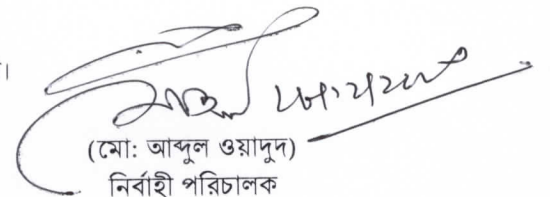 ।
(মো: আব্দুল ওয়াদুদ)
নির্বাহী পরিচালক